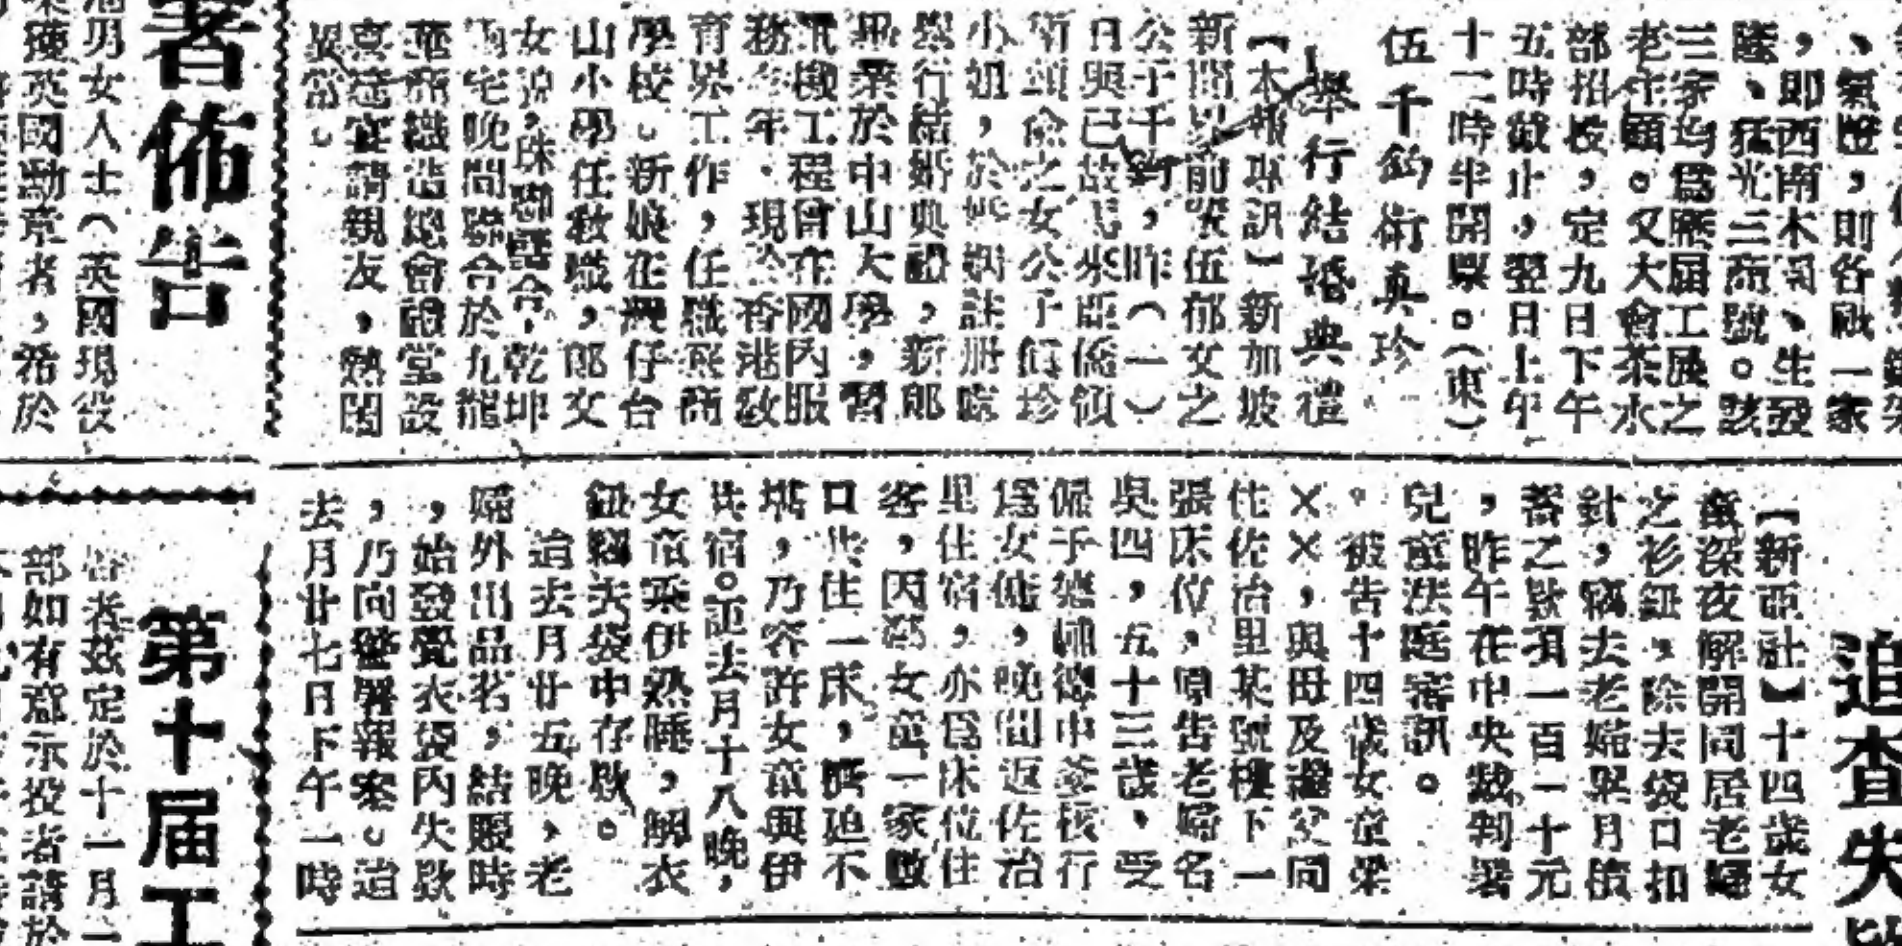 、氣燈，則各厰一家
，即西南木閣、生發
隆、猛光三商號。該
三家均爲應屆工展之
老主顧。又大會茶水
部招投，定九日下午
五時截止，翌日上午
十二時半開票。（東）
伍千鈞術真珍
舉行結婚典禮
【本報專訊】新加坡
新聞界前輩伍郁女之
公子千鈞，昨（一）
日與已故馬來亞僑領
術頌俞之女公子術珍
小姐，於 註册處
舉行結婚典禮，新郎
畢業於中山大學，習
機工程曾在國內服
務多年，現於香港敎
育界工作，任職 商
學校。新娘在灣仔台
山小學任敎職，郎女
女 ，珠聯璧合，乾坤
宅晚間聯合於九龍
華商織造總會禮堂設
喜筵宴請親友，熱閙
異常。
【新亞社】十四歲女
童深夜解開同居老婦
之衫鈕，除去袋口扣
針，竊去老婦畢月積
蓄之欵項一百一十元
，昨午在中央裁判署
兒童法庭審訊。
被告十四歲女童梁
××，與母及繼父同
住佐治里某號樓下一
張床位，原告老婦名
吳四，五十三歲，受
僱于德輔道中釜核行
爲女傭，晚間返佐治
里住宿，亦爲床位住
客，因 女童一家數
口共住一床，擠迫不
堪，乃容許女童與伊
共宿。詎去月十八晚，
女童乘伊熟睡，解衣
鈕竊去袋中存欵。
迨去月廿五晚，老
婦外出品茗，結賬時
，始發覺衣袋內失欵
，乃向警署報案。迨
去月廿七日下午一時
追查失
著佈告
男女人士（英國現役
獲英國勳章者，希於
第十届工
啓者茲定於十一月
部如有意示投者請於